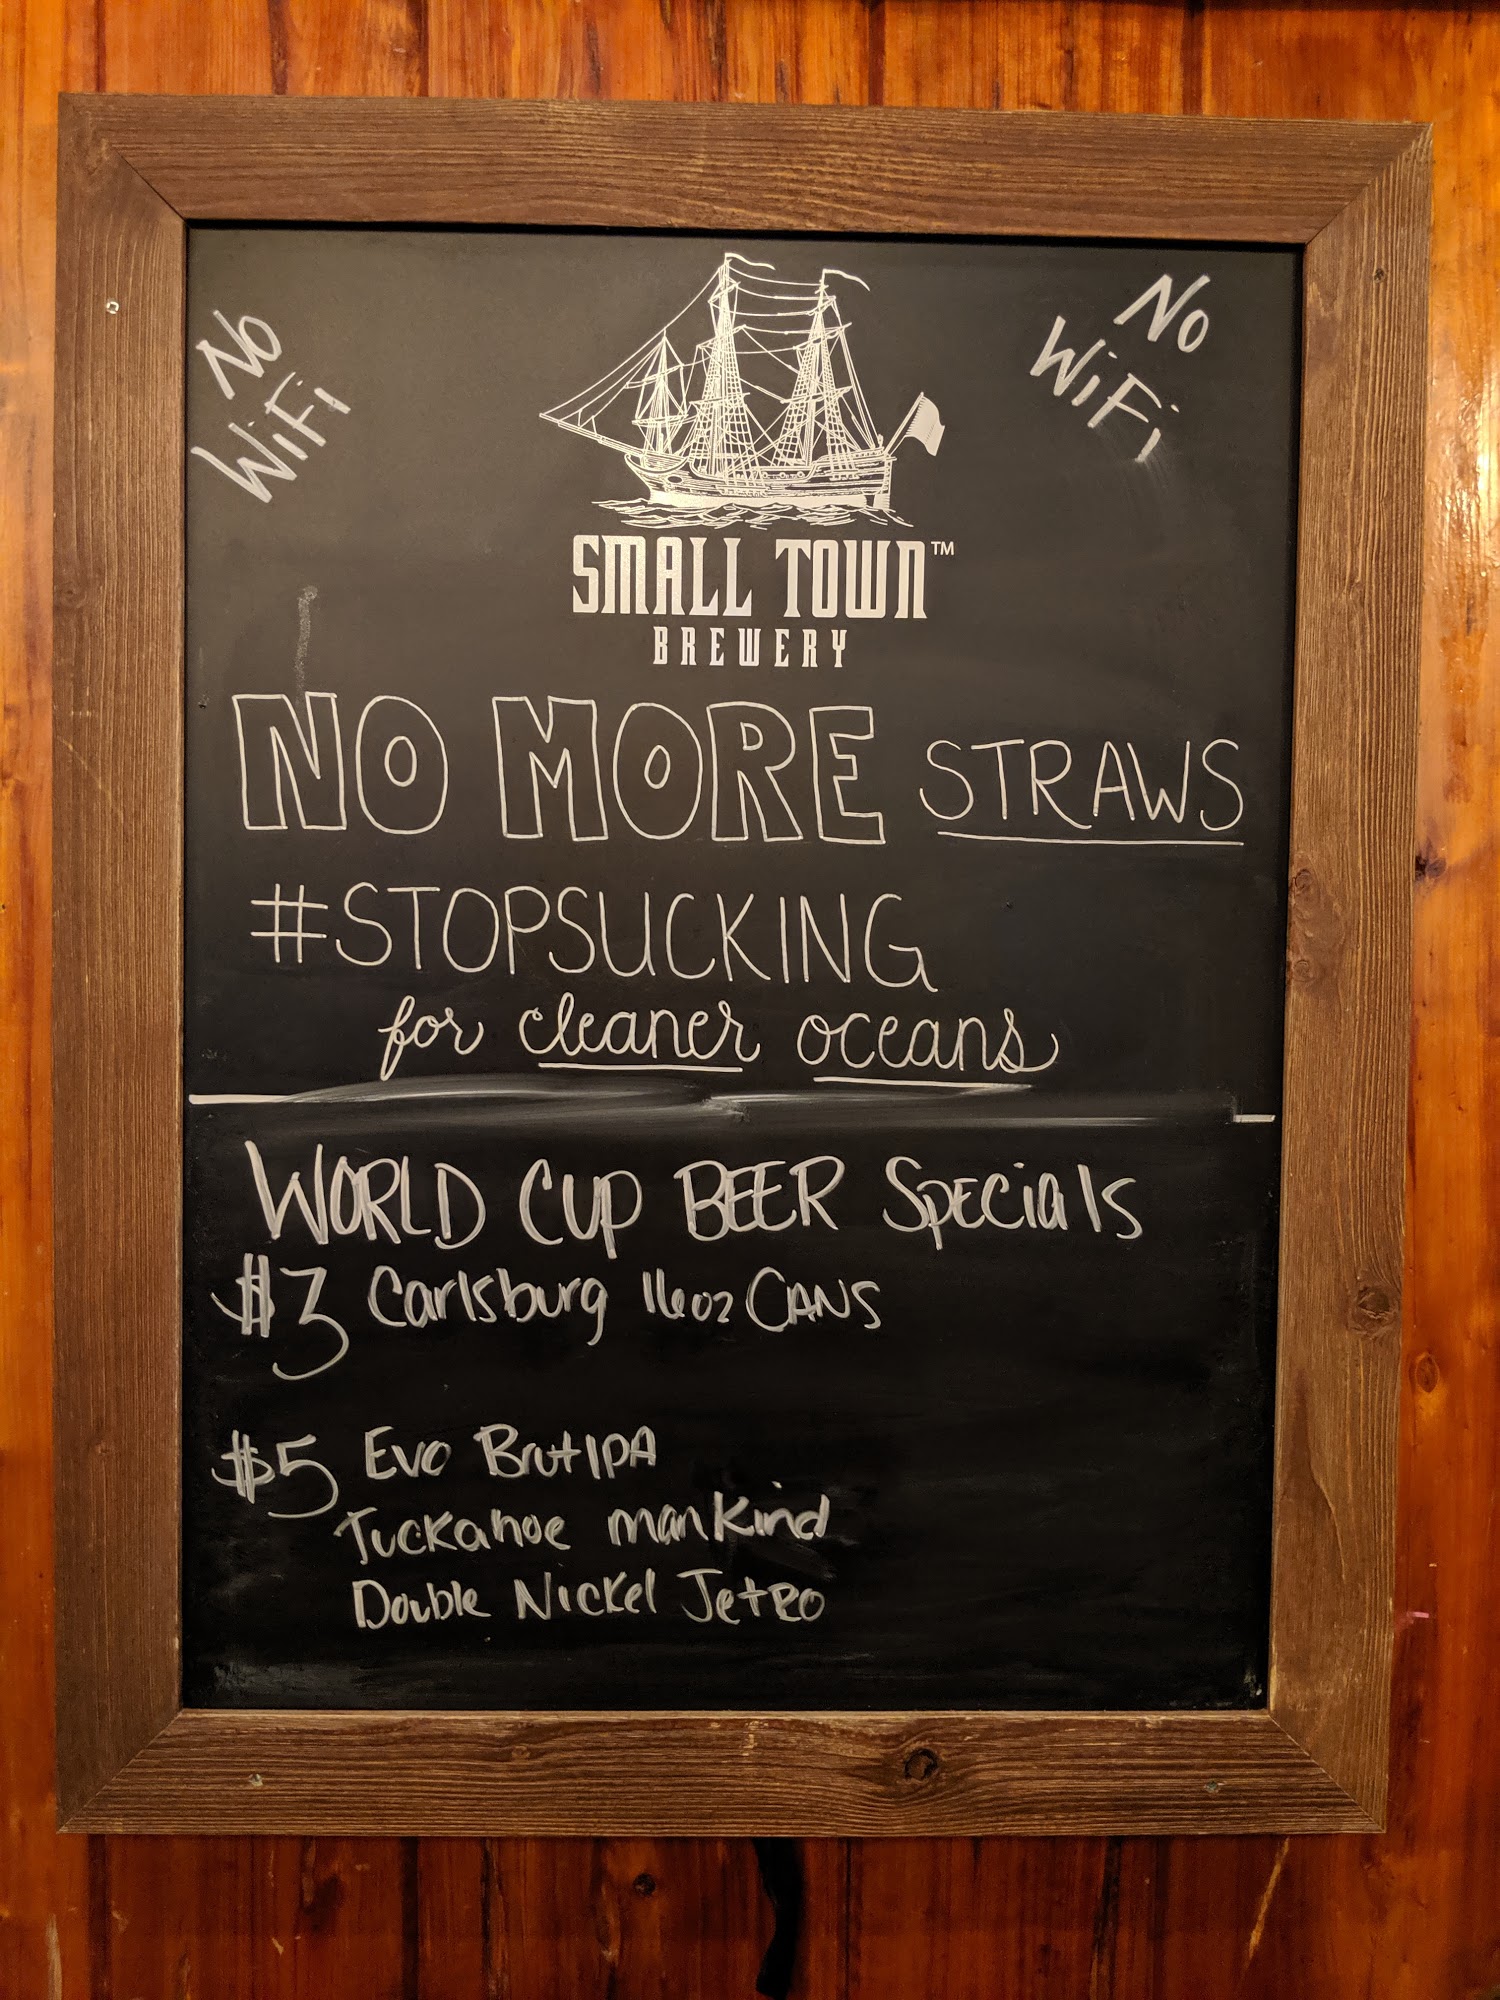 No
WiFi
No
WiFi
SMALL TOWN™
BREWERY
NO MORE STRAWS
#STOPSUCKING
for cleaner oceans
WORLD CUP BEER Specials
$3 Carlsburg 16oz CANS
$5 Evo Brut IPA
Tuckahoe manKind
Double Nickel Jetro